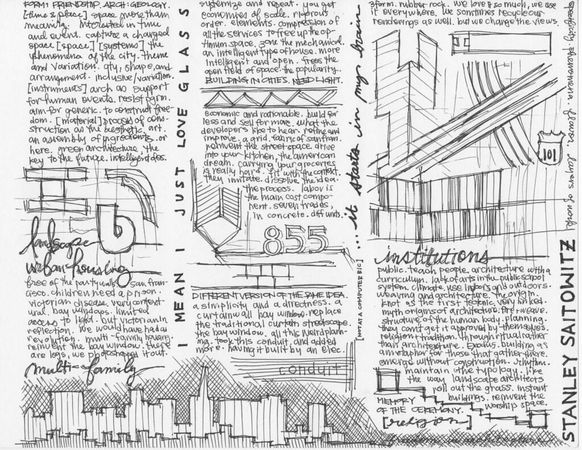 FORM. FRIENDSHIP. ARCH. GEOLOGY.
[time & space] space gives them
meaning. interested in time
and event. capture a charged
space [space] [systems] the
phenomena of the city. theme
and variation. qty, shape, and
arrangement. inclusive/variation.
[instruments] arch as support
for human events. resist form.
aim for generic. to construct free-
dom. [material] process of con-
struction as the aesthetic. art.
an assembly of ingredients. or
here. green architecture. the
key to the future. intelligent des.
landscape
urban-housing
free of the party wall. san fran-
cisco. children need a prison.
victorian disease. very context-
ual. bay windows. limited
access to light. but victorian in
reflection. we would have had a
revolution. multi-family haven.
reinvent the bay window. they
are logs, we photograph it out.
multi-family
I MEAN I JUST LOVE GLASS
customize and repeat. you get
economies of scale. rigorous
order. elements. compression of
all the services to free up the op-
timum space. zone the mechanical.
an intelligent type of house. more
intelligent and open. frees the
open field of space. the popularity.
BUILDING IN CITIES. NEED LIGHT.
economic and rationable. build for
less and sell for more. what the
developers like to hear. refine and
improve. a grid. fabric of san fran.
reinvent the street-space. drive
into your kitchen, the american
dream. carrying your groceries
is really hard. fit with the context.
they imitate. dissolve the idea.
the process. labor is
the main cost compo-
nent. seven trades,
in concrete. diff units.
855
DIFFERENT VERSION OF THE SAME IDEA.
a simplicity and a directness. a
curtain all bay window. replace
the traditional curtain streetscape.
the bay window. all the neighbor-
ing. took this conduit, and added
more. having it built by an elec.
conduit
...it starts in my brain
[NOT A COMPUTER BIC]
form. rubber. rock. we love it so much, we use
it everywhere. we sometimes recycle our
renderings as well. but we change the views.
101
institutions
public. teach people. architecture with a
curriculum. lack of arts in the public school
system. climate. use indoors and outdoors.
weaving and architecture. the origin.
not at the first test. very linked.
myth origins of architecture. fire. weave.
structure of the human body. planning.
they cant get it approved by themselves.
religion + tradition. through ritual rather
than architecture. exodus. building as
a metaphor for those that gather there.
emerge without construction. rhythm.
maintain the typology. like
the way landscape architects
roll out the grass. instant
buildings. reinvent the
worship space.
MEMORY
OF THE CEREMONY.
[religion]
STANLEY SAITOWITZ